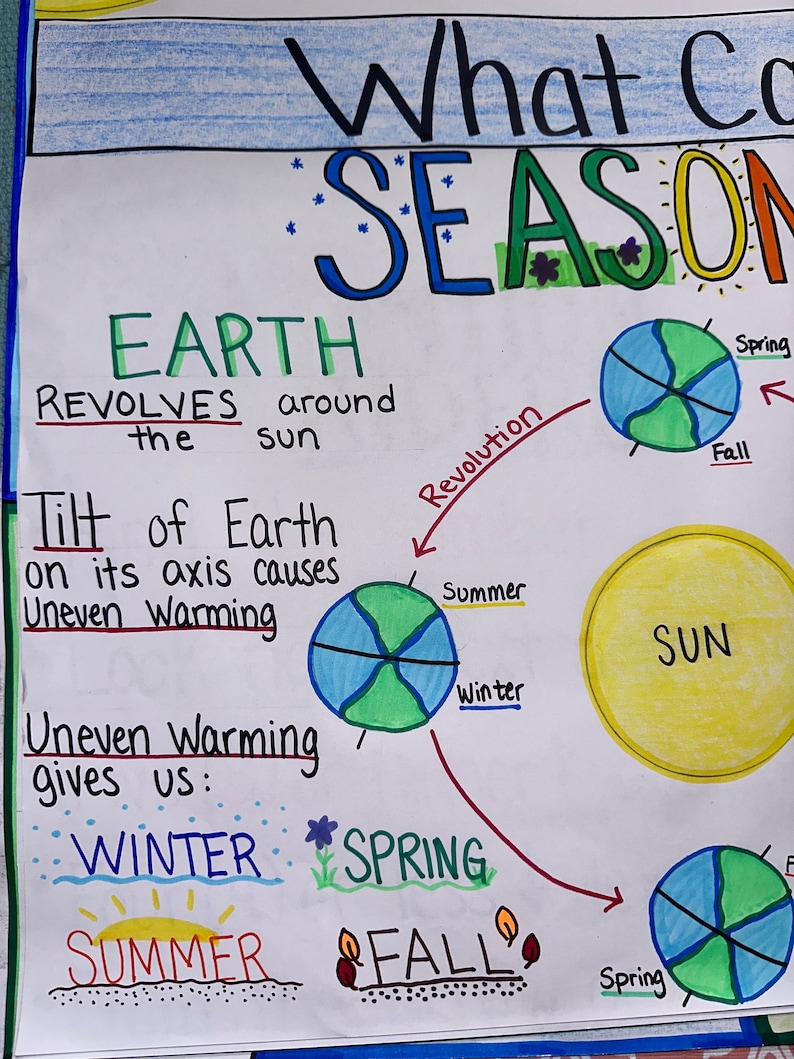 What Ca
SEASON
EARTH
REVOLVES around
the sun
Tilt of Earth
on its axis causes
Uneven Warming
Uneven Warming
gives us:
WINTER
SPRING
SUMMER
FALL
Revolution
Spring
Fall
Summer
Winter
SUN
F
Spring